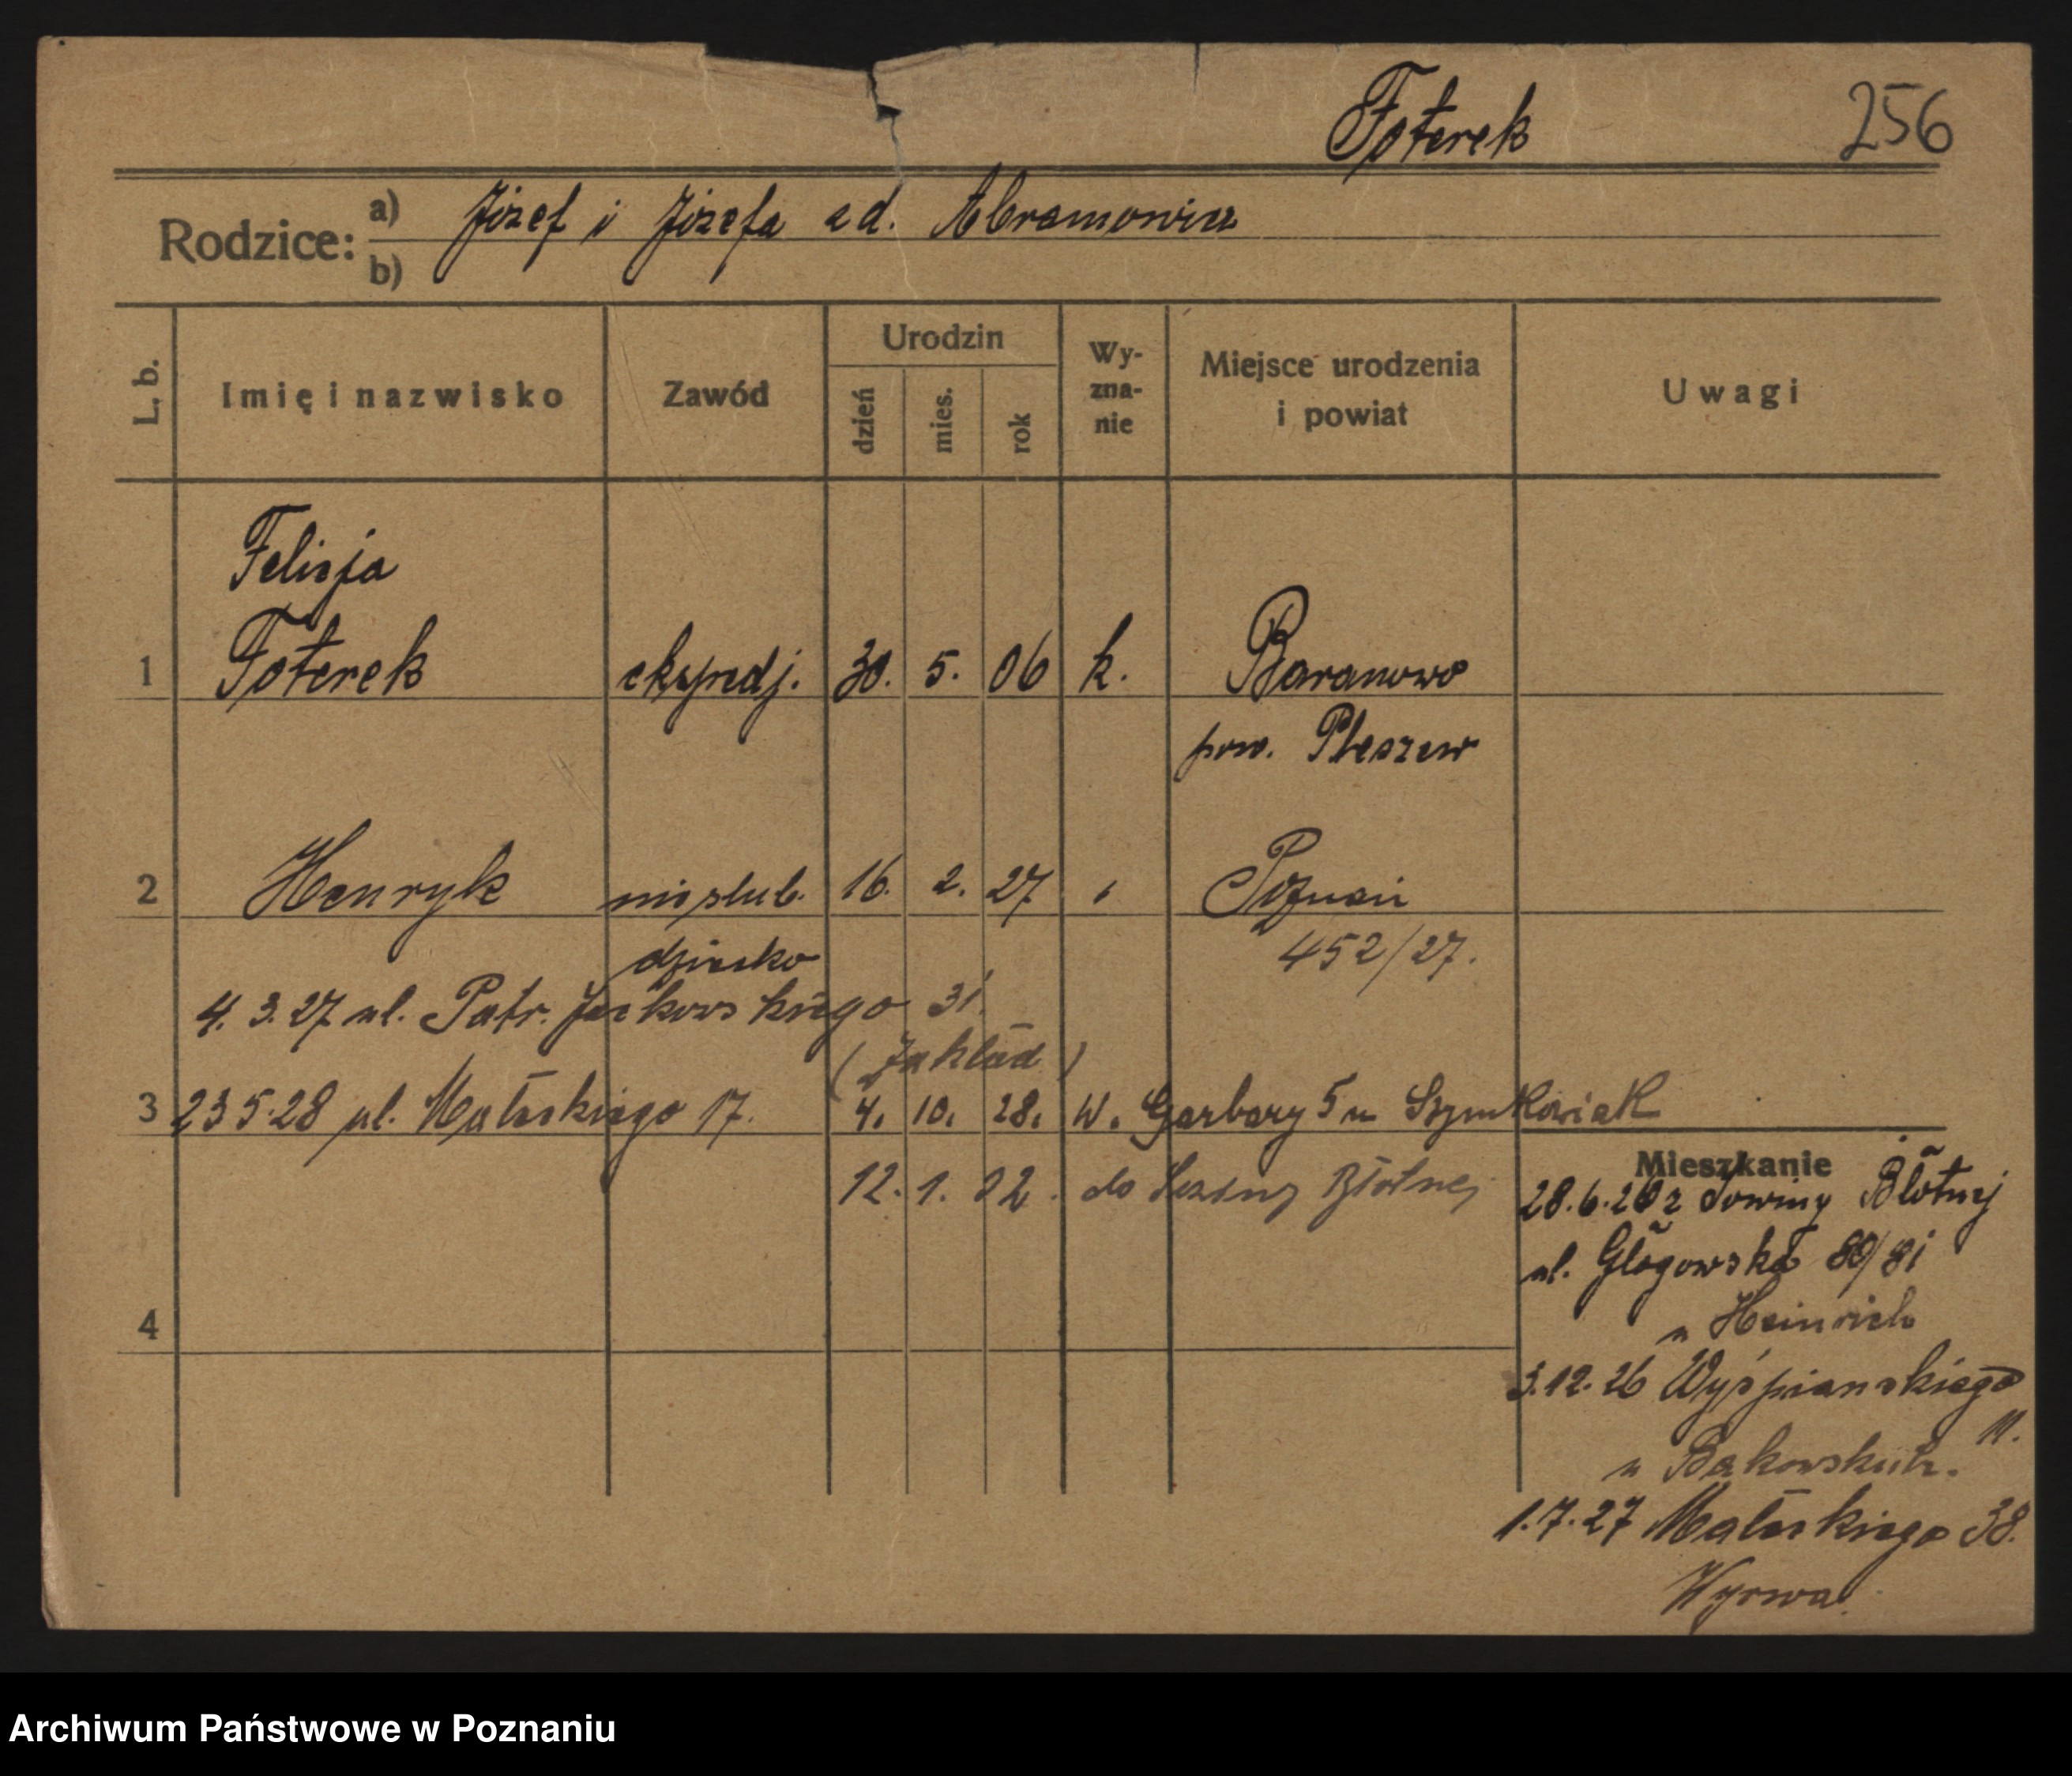 Foterek 256
Rodzice: a) Józef i Józefa zd. Abramowicz
b)
L. b. Imię i nazwisko Zawód Urodzin dzień mies. rok Wy-zna-nie Miejsce urodzenia i powiat Uwagi
Felicja
1 Foterek ekspedj. 30. 5. 06 k. Baranowo
pow. Pleszew
2 Henryk nieślub. 16. 2. 27 " Poznań
dziecko 452/27.
4. 3. 27 ul. Patr. Jackowskiego 31.
(Zakład)
3 23 5.28 ul. Małeckiego 17. 4. 10. 28. W. Garbary 5 u Szymkowiak
12. 1. 02. do Błotnej
Mieszkanie
28.6.26 z Sowiny Błotnej
ul. Głogowska 80/81
u Heinrich
4
3.12.26 Wyspiańskiego
11.
u
1.7.27 Małeckiego 38.
Wyrwa.
Archiwum Państwowe w Poznaniu